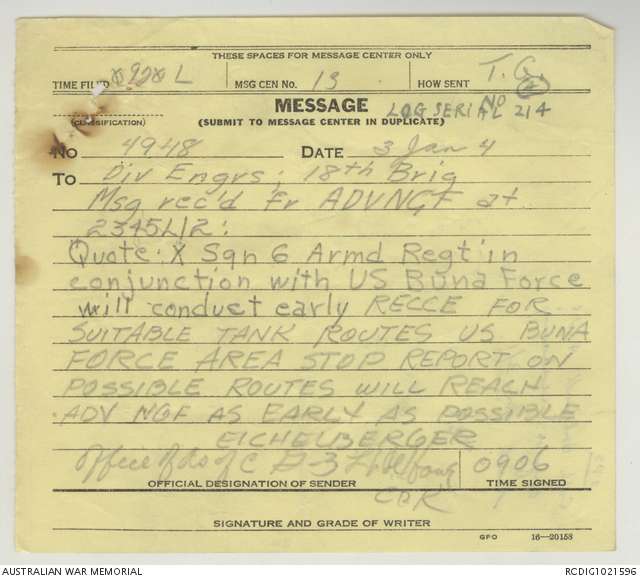 THESE SPACES FOR MESSAGE CENTER ONLY
TIME FILED 0920 L MSG CEN No. 13 HOW SENT T.G. 4
MESSAGE LOG SERIAL NO 214
(CLASSIFICATION) (SUBMIT TO MESSAGE CENTER IN DUPLICATE)
No 4948 DATE 3 Jan 4
To Div Engrs; 18th Brig
Msg rec'd fr ADVNGF at
2345L/2:
Quote: X Sqn 6 Armd Regt in
conjunction with US Buna Force
will conduct early RECCE FOR
SUITABLE TANK ROUTES US BUNA
FORCE AREA STOP REPORT ON
POSSIBLE ROUTES WILL REACH
ADV NGF AS EARLY AS POSSIBLE
EICHELBERGER
Office of G-3 0906
OFFICIAL DESIGNATION OF SENDER TIME SIGNED
SIGNATURE AND GRADE OF WRITER
GPO 16—20153
AUSTRALIAN WAR MEMORIAL RCDIG1021596